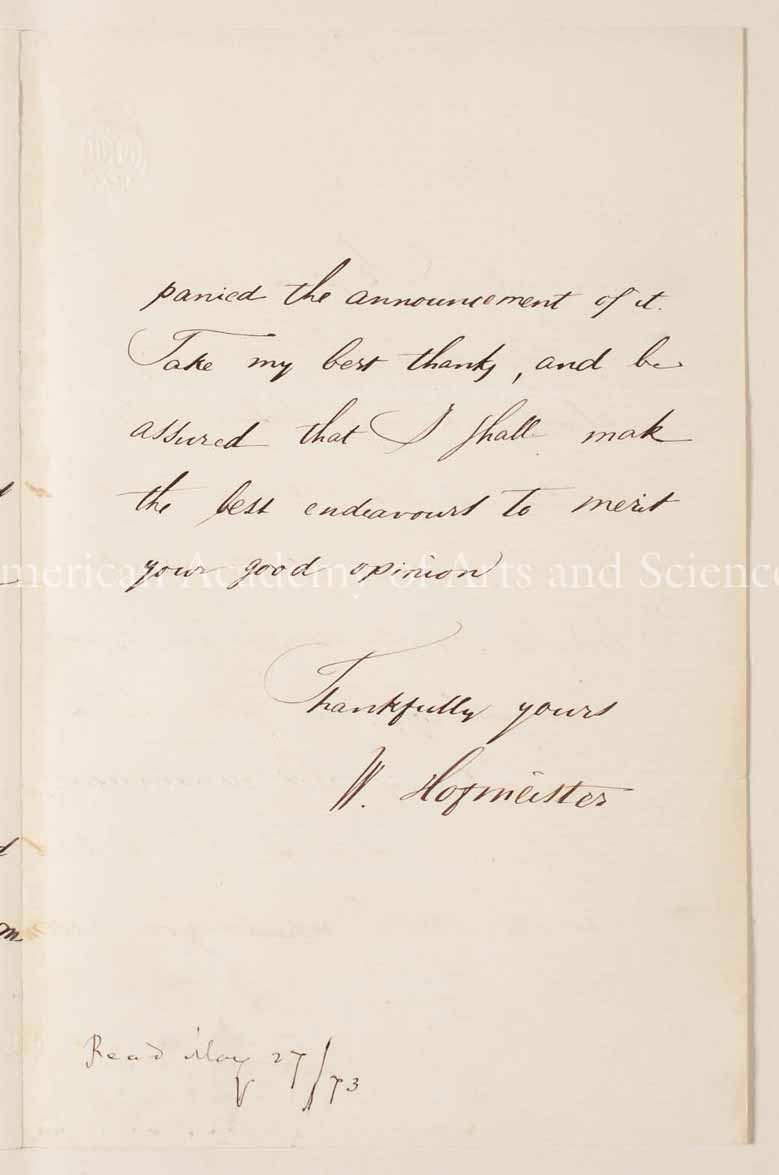 panied the announcement of it.
Take my best thanks, and be
assured that I shall mak
the best endeavours to merit
your good opinion
merican Academy of Arts and Science
Thankfully yours
W. Hofmeister
m
Read May 27/73